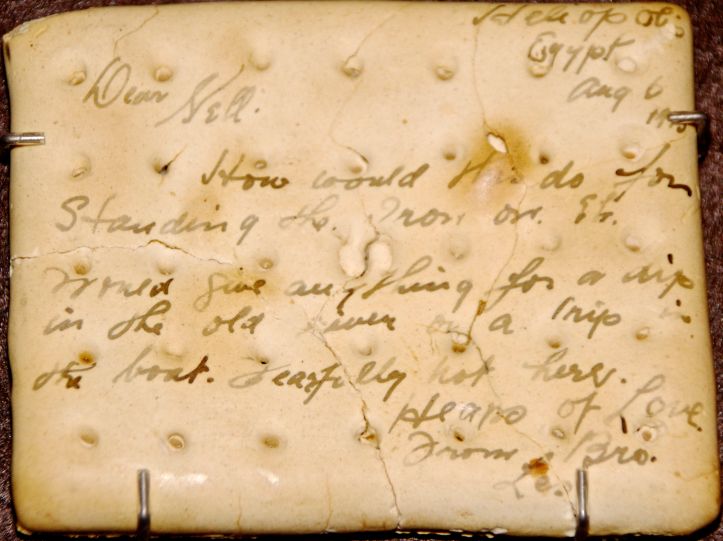 Heliopolis
Egypt
Aug 6
Dear Nell.
How would this do for
Standing the Iron on. Eh.
Would give anything for a dip
in the old river or a trip in
the boat. Fearfully hot here.
Heaps of Love
From Bro.